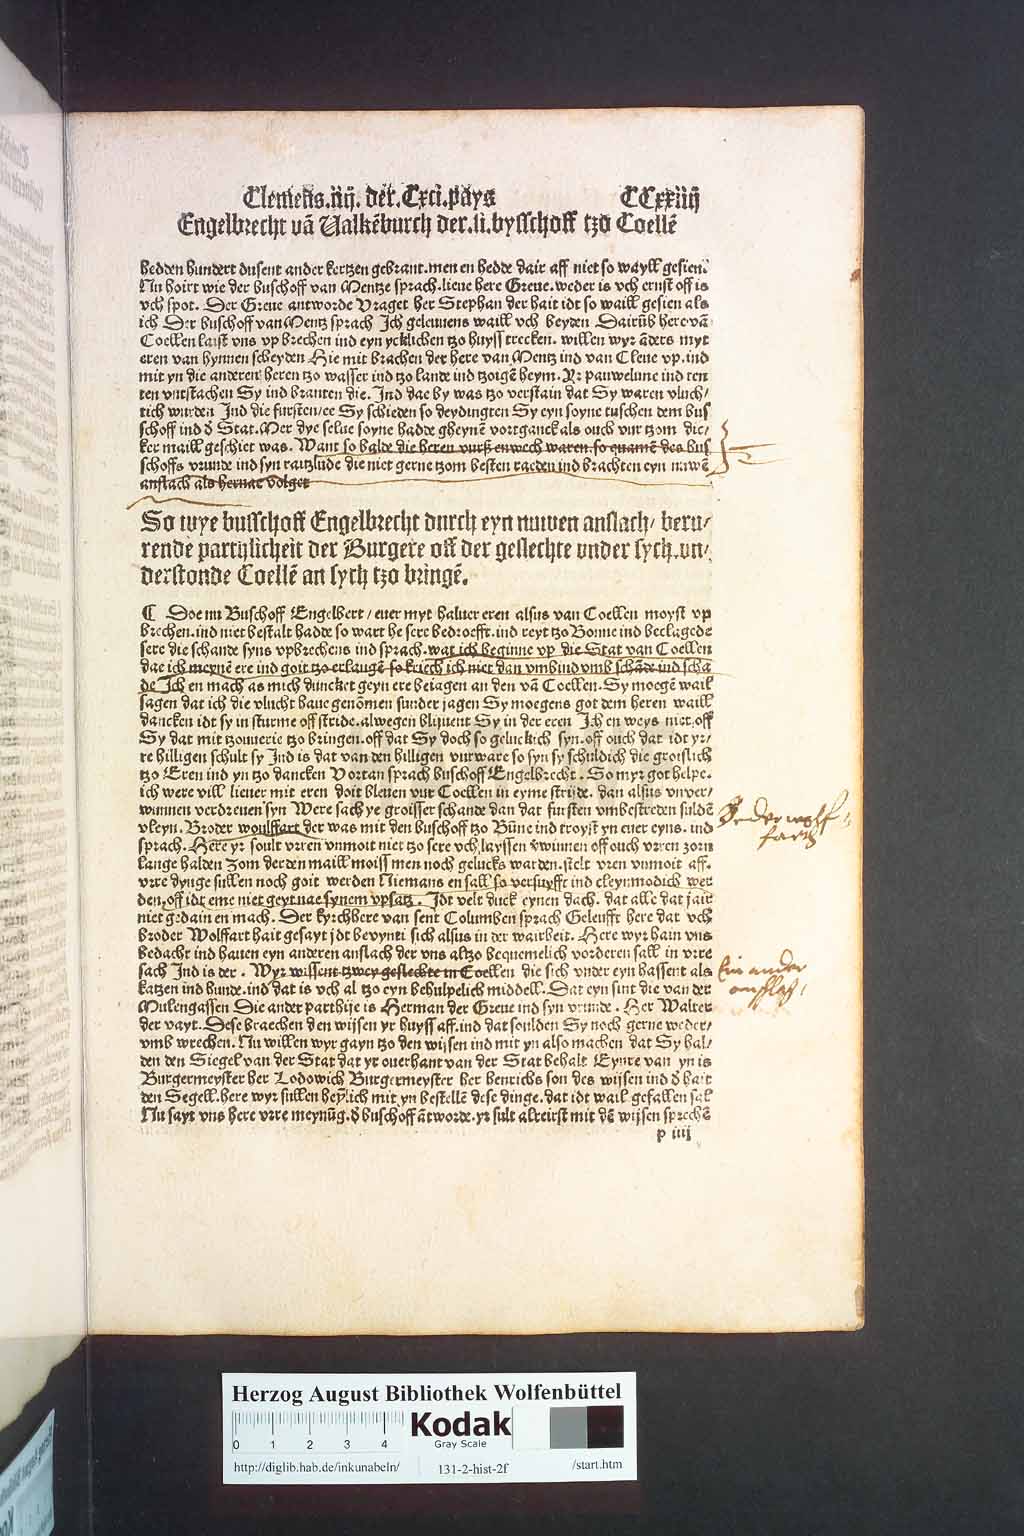 Clemens.iiij. der.Cxci.pays CCxxiiij
Engelbrecht vā Valkēburch der.li.bysschoff tzo Coellē
hedden hundert dusent ander kertzen gebrant.men en hedde dair aff niet so wayll gesien.
Nu hoirt wie der buschoff van Mentze sprach.lieue here Greue.weder is vch ernst off is
vch spot. Der Greue antworde Vraget her Stephan der hait idt so waill gesien als
ich Der buschoff van Mentz sprach Ich geleuuens waill vch beyden Dairūb here vā
Coellen laist vns vp brechen ind eyn ycklichen tzo huyss trecken. willen wyr āders myt
eren van hynnen scheyden Hie mit brachen der here van Mentz ind van Cleue vp.ind
mit yn die anderen heren tzo wasser ind tzo lande ind tzoigē heym. Yr pauwelune ind ten
ten vntstachen Sy ind branten die. Ind dae by was tzo verstain dat Sy waren vluch/
tich wurden Ind die fursten/ee Sy schieden so deydingten Sy eyn soyne tuschen dem bus
schoff ind d Stat.Mer dye selue soyne hadde gheynē vortganck als ouch vur tzom dic/
ker maill geschiet was. Want so balde die heren vurß enwech waren.so quamē des bus
schoffs vrunde ind syn raitzlude die niet gerne tzom besten raeden ind brachten eyn nuwē
anslach als hernae volget
So wye busschoff Engelbrecht durch eyn nuwen anslach/ beru/
rende partijlicheit der Burgere off der geslechte vnder sych.vn/
derstonde Coellē an sych tzo bringē.
¶ Doe nu Buschoff Engelbert/euer myt haluer eren alsus van Coellen moyst vp
brechen.ind niet bestalt hadde so wart he sere bedroefft.ind reyt tzo Bonne ind beclagede
sere die schande syns vpbrechens ind sprach.wat ich beginne vp die Stat van Coellen
dae ich meynē ere ind goit tzo erlangē so kriech ich niet dan vmbind vmb schāde ind scha
de Ich en mach as mich duncket geyn ere beiagen an den vā Coellen.Sy moegē wail
sagen dat ich die vlucht haue genōmen sunder jagen Sy moegens got dem heren waill
dancken idt sy in sturme off stride.alwegen blijuent Sy in der eren Ich en weys niet.off
Sy dat mit tzouuerie tzo bringen.off dat Sy doch so geluckich syn.off ouch dat idt yr/
re hilligen schult sy Ind is dat van den hilligen vurware so syn sy schuldich die groislich
tzo Eren ind yn tzo dancken Vortan sprach buschoff Engelbrecht. So myr got helpe.
ich were vill lieuer mit eren doit bleuen vur Coellen in eyme stride. dan alsus vnver/
wunnen verdreuen syn Were sach ye groisser schande dan dat fursten vmbestreden suldē
vleyn. Broder woulffart der was mit den buschoff tzo Būne ind troyst yn euer eyns. ind
sprach. Here yr soult vrren vnmoit niet tzo sere vch layssen v̄winnen off ouch vrren zorn
lange halden Zom derden maill moiss men noch gelucks warden.stelt vren vnmoit aff.
vrre dynge sullen noch goit werden Niemans en sall so versuyfft ind cleynmodich wer
den.off idt eme niet geyt nae synem vpsatz. Idt velt duck eynen dach. dat alle dat jair
niet gedain en mach. Der kyrchhere van sent Columben sprach Geleufft here dat vch
broder Wolffart hait gesayt jdt bevynti sich alsus in der wairheit. Here wyr hain vns
bedacht ind hauen eyn anderen anslach der vns altzo bequemelich vorderen sall in vrre
sach Ind is der. Wyr wissent tzwey geslechte in Coellen die sich vnder eyn hassent als
katzen ind hunde.ind dat is vch al tzo eyn behulpelich middell. Dat eyn sint die van der
Mulengassen Die ander parthije is Herman der Greue ind syn vrunde. Her Walter
der vayt. Dese braechen den wijsen yr huyss aff.ind dat soulden Sy noch gerne weder/
vmb wrechen. Nu willen wyr gayn tzo den wijsen ind mit yn also machen dat Sy hal/
den den Siegel van der Stat dat yr ouerhant van der Stat behalt Eynre van yn is
Burgermeyster her Lodowich Burgermeyster her henrichs son des wijsen ind d hait
den Segell.here wyr sullen heȳlich mit yn bestellē dese dinge.dat idt wail gefallen sal
Nu sayt vns here vrre meynūg.d buschoff ātworde.yr sult alreirst mit dē wijsen sprechē
p iiij
Broder wolf
fartz
Ein ander
anschlag
Herzog August Bibliothek Wolfenbüttel
0 1 2 3 4
Kodak
Gray Scale
http://diglib.hab.de/inkunabeln/ 131-2-hist-2f /start.htm